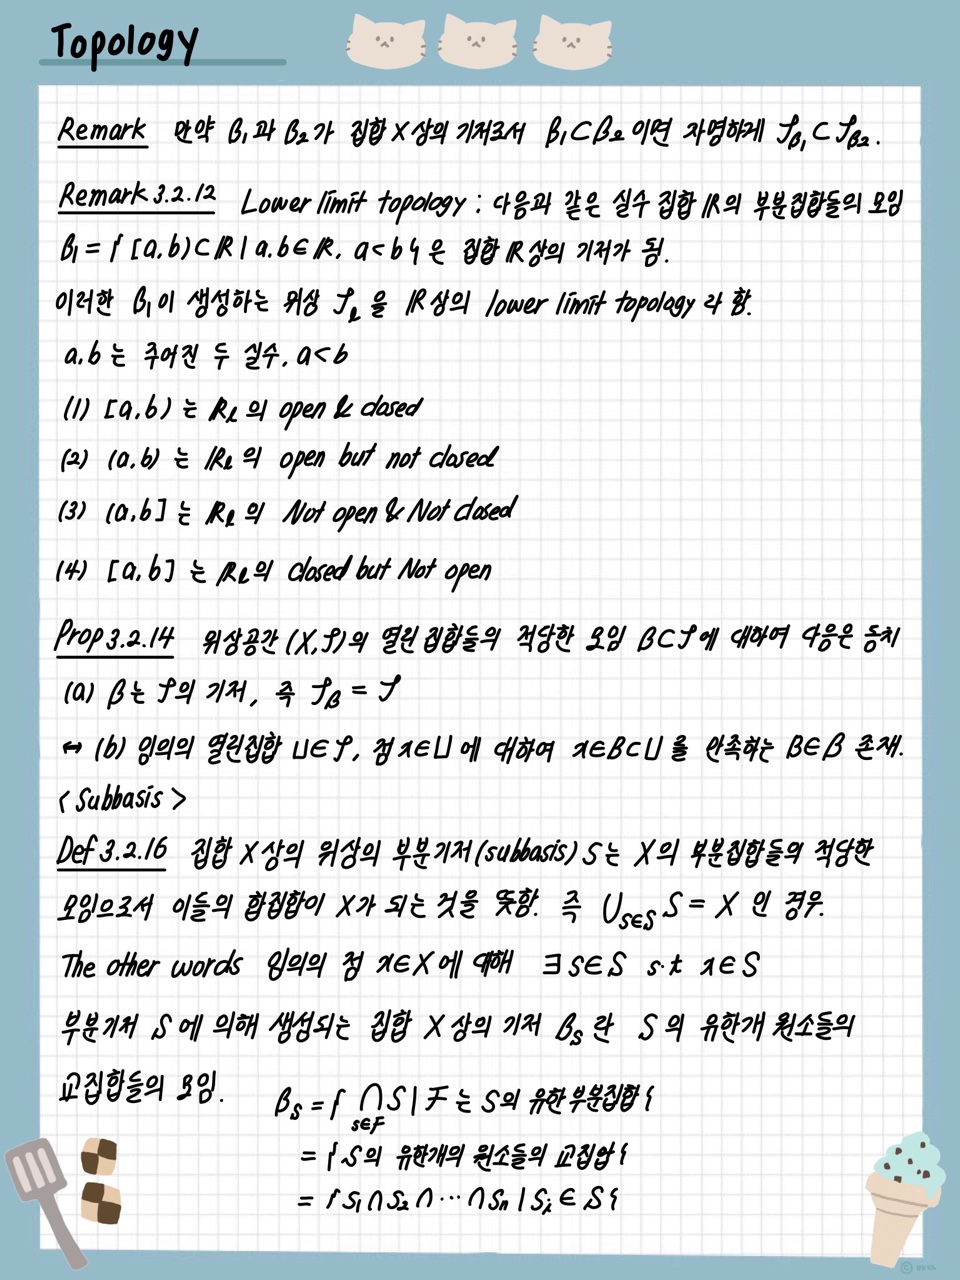 Topology
Remark 만약 β₁과 β₂가 집합 X상의 기저로서 β₁⊂β₂이면 자명하게 𝒯_β₁⊂𝒯_β₂.
Remark 3.2.12 Lower limit topology : 다음과 같은 실수 집합 ℝ의 부분집합들의 모임
β₁ = { [a,b)⊂ℝ | a,b∈ℝ, a<b }은 집합 ℝ상의 기저가 됨.
이러한 β₁이 생성하는 위상 𝒯_l을 ℝ상의 lower limit topology 라 함.
a,b는 주어진 두 실수, a<b
(1) [a,b)는 ℝ_l의 open & closed
(2) (a,b)는 ℝ_l의 open but not closed
(3) (a,b]는 ℝ_l의 Not open & Not closed
(4) [a,b]는 ℝ_l의 closed but Not open
Prop 3.2.14 위상공간 (X,𝒯)의 열린 집합들의 적당한 모임 β⊂𝒯에 대하여 다음은 동치
(a) β는 𝒯의 기저, 즉 𝒯_β = 𝒯
↔ (b) 임의의 열린집합 U∈𝒯, 점 x∈U에 대하여 x∈B⊂U를 만족하는 B∈β 존재.
<Subbasis>
Def 3.2.16 집합 X상의 위상의 부분기저(subbasis) S는 X의 부분집합들의 적당한
모임으로서 이들의 합집합이 X가 되는 것을 뜻함. 즉 ⋃_{S∈S} S = X 인 경우.
The other words 임의의 점 x∈X에 대해 ∃S∈S s.t x∈S
부분기저 S에 의해 생성되는 집합 X상의 기저 β_S란 S의 유한개 원소들의
교집합들의 모임.
β_S = { ⋂_{S∈F} S | F는 S의 유한부분집합 }
= { S의 유한개의 원소들의 교집합 }
= { S₁∩S₂∩⋯∩Sₙ | Sᵢ∈S }